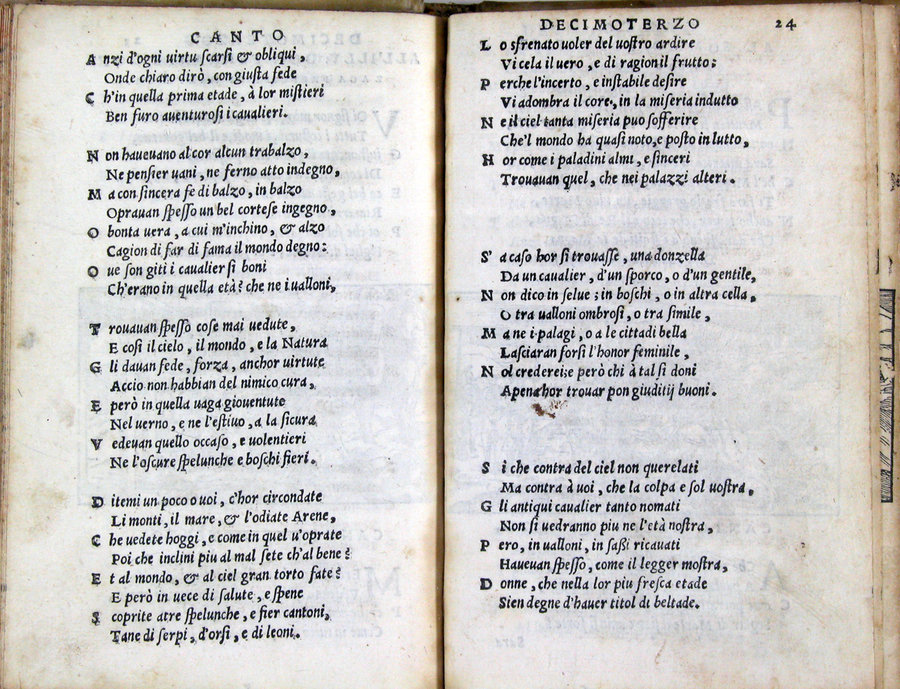 CANTO
Anzi d'ogni uirtu scarsi & obliqui,
Onde chiaro dirò, con giusta fede
Ch'in quella prima etade, à lor mistieri
Ben furo auenturosi i caualieri.
Non haueuano al cor alcun trabalzo,
Ne pensier uani, ne ferno atto indegno,
Ma con sincera fe di balzo, in balzo
Oprauan spesso un bel cortese ingegno,
O bonta uera, a cui m'inchino, & alzo
Cagion di far di fama il mondo degno:
Oue son giti i caualier si boni
Ch'erano in quella età? che ne i ualloni,
Trouauan spesso cose mai uedute,
E cosi il cielo, il mondo, e la Natura
Gli dauan fede, forza, anchor uirtute
Accio non habbian del nimico cura,
E però in quella uaga giouentute
Nel uerno, e ne l'estiuo, a la sicura
Vedeuan quello occaso, e uolentieri
Ne l'oscure spelunche e boschi fieri.
Ditemi un poco o uoi, c'hor circondate
Li monti, il mare, & l'odiate Arene,
Che uedete hoggi, e come in quel u'oprate
Poi che inclini piu al mal sete ch'al bene?
Et al mondo, & al ciel gran torto fate?
E però in uece di salute, e spene
Scoprite atre spelunche, e fier cantoni,
Tane di serpi, d'orsi, e di leoni.
DECIMOTERZO 24
Lo sfrenato uoler del uostro ardire
Vi cela il uero, e di ragion il frutto:
Perche l'incerto, e instabile desire
Vi adombra il core, in la miseria indutto
Ne il ciel tanta miseria puo sofferire
Che'l mondo ha quasi noto, e posto in lutto,
Hor come i paladini almi, e sinceri
Trouauan quel, che nei palazzi alteri.
S'a caso hor si trouasse, una donzella
Da un caualier, d'un sporco, o d'un gentile,
Non dico in selue; in boschi, o in altra cella,
O tra ualloni ombrosi, o tra simile,
Ma ne i palagi, o a le cittadi bella
Lasciaran forsi l'honor feminile,
Nol credereise però chi à tal si doni
Apena hor trouar pon giuditij buoni.
Si che contra del ciel non querelati
Ma contra à uoi, che la colpa e sol uostra,
Gli antiqui caualier tanto nomati
Non si uedranno piu ne l'età nostra,
Pero, in ualloni, in sassi ricauati
Haueuan spesso, come il legger mostra,
Donne, che nella lor piu fresca etade
Sien degne d'hauer titol di beltade.